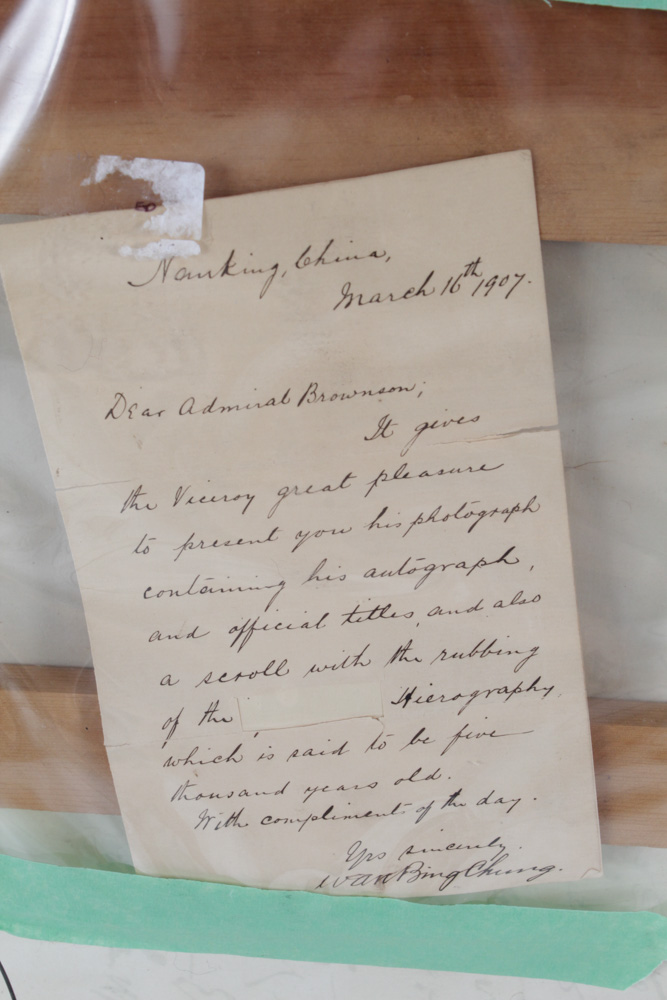 50
Nanking, China,
March 16th 1907.
Dear Admiral Brownson;
It gives
the Viceroy great pleasure
to present you his photograph
containing his autograph,
and official titles, and also
a scroll with the rubbing
of the Hierography,
which is said to be five
thousand years old.
With compliments of the day.
Yrs sincerely.
Wan Bing Chung.